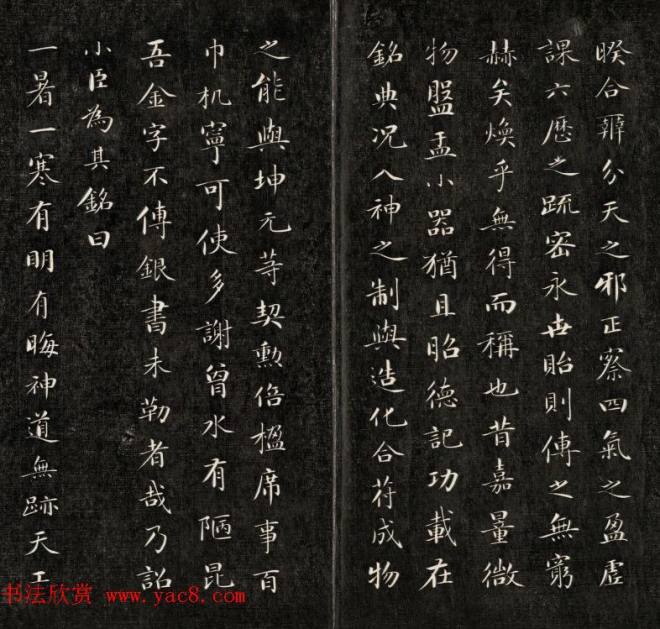 睽合辨分天之邪正察四氣之盈虚
課六歷之疏密永世貽則傳之無窮
赫矣煥乎無得而稱也昔嘉量微
物盤盂小器猶且昭德記功載在
銘典況入神之制與造化合苻成物
之能與坤元等契勳倍楹席事百
巾机寧可使多謝曾水有陋昆
吾金字不傳銀書未勒者哉乃詔
小臣為其銘曰
一暑一寒有明有晦神道無跡天工
书法欣赏 www.yac8.com